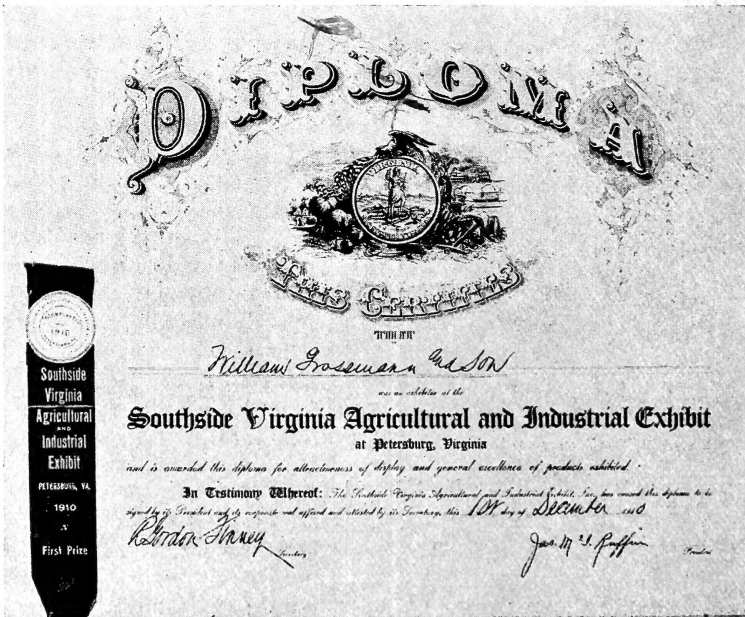 DIPLOMA
VIRGINIA
THIS CERTIFIES
THAT
William Grossmann and Son
was an exhibitor at the
Southside Virginia Agricultural and Industrial Exhibit
at Petersburg, Virginia
and is awarded this diploma for attractiveness of display and general excellence of products exhibited.
In Testimony Whereof: The Southside Virginia Agricultural and Industrial Exhibit, Inc., has caused this diploma to be
signed by its President and its corporate seal affixed and attested by its Secretary, this 1st day of December 1910
R Gordon Finney
Secretary
Jas. M Ruffin
President
1910
Southside
Virginia
Agricultural
AND
Industrial
Exhibit
PETERSBURG, VA.
1910
First Prize